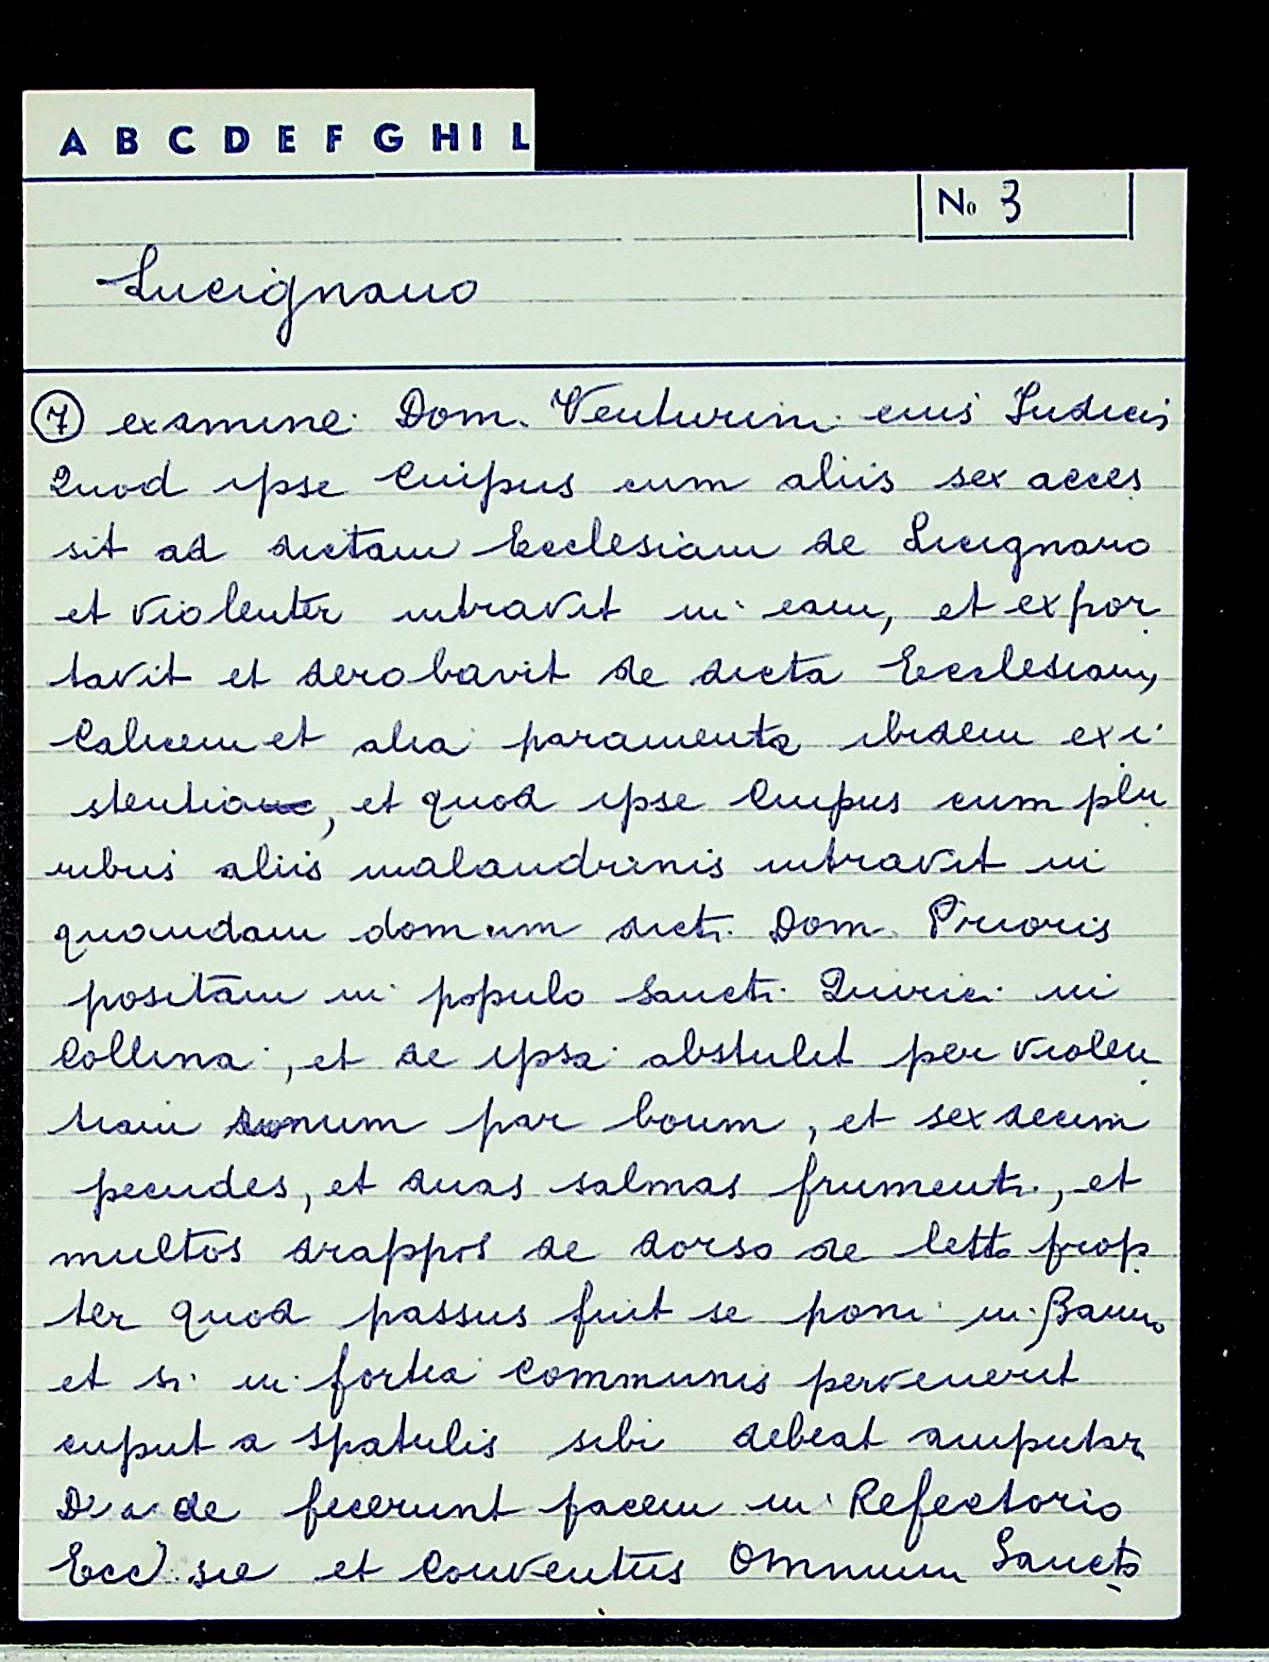 A B C D E F G H I L
No 3
Lucignano
7 examine Dom. Venturini eius Judicis
Quod ipse Cuipus cum aliis sex acces
sit ad dictam Ecclesiam de Lucignano
et violenter intravit in eam, et expor
tavit et derobavit de dicta Ecclesiam,
Calicem et alia paramenta ibidem exi
stentia, et quod ipse Cuipus cum plu
ribus aliis malandrinis intravit in
quamdam domum dicti Dom. Prioris
positam in populo Sancti Quirici in
Collina, et de ipsa abstulit per violen
tiam unum par boum, et sexdecim
pecudes, et duas salmas frumenti, et
multos drappos de dorso de letto prop
ter quod passus fuit se poni in Banno
et si in fortia Communis pervenerit
caput a spatulis sibi debeat amputari
fecerunt pacem in Refectorio
et Conventus Omnium Sancto